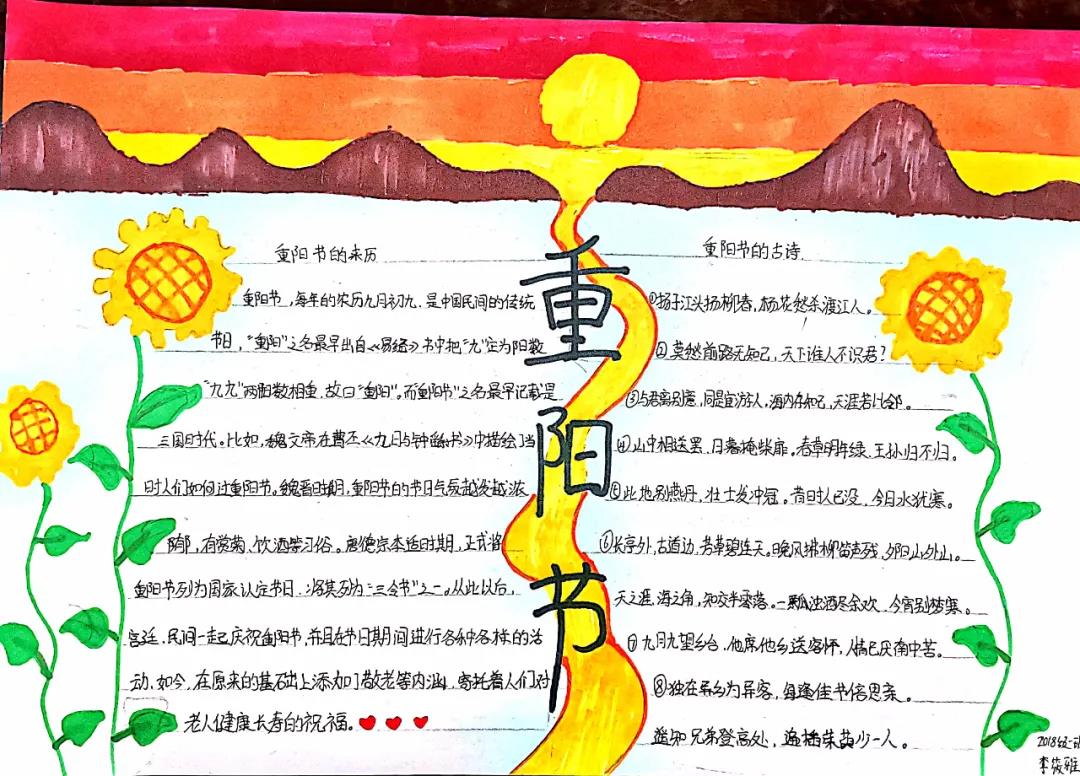 重阳节
重阳节的来历
重阳节，每年的农历九月初九，是中国民间的传统
节日，"重阳"之名最早出自《易经》书中把"九"定为阳数
"九九"两阳数相重，故曰"重阳"。而重阳节"之名最早记载是
三国时代。比如，魏文帝在曹丕《九日与钟繇书》中描绘了当
时人们如何过重阳节。魏晋时期，重阳节的节日气氛越发越浓
郁，有赏菊、饮酒等习俗。唐德宗李适时期，正式将
重阳节列为国家认定节日，将其列为"三令节"之一。从此以后，
宫廷、民间一起庆祝重阳节，并且在节日期间进行各种各样的活
动。如今，在原来的基础上添加了敬老等内涵，寄托着人们对
老人健康长寿的祝福。
重阳节的古诗
①扬子江头杨柳春，杨花愁杀渡江人。
②莫愁前路无知己，天下谁人不识君？
③与君离别意，同是宦游人，海内存知己，天涯若比邻。
④山中相送罢，日暮掩柴扉。春草明年绿，王孙归不归。
⑤此地别燕丹，壮士发冲冠。昔时人已没，今日水犹寒。
⑥长亭外，古道边，芳草碧连天。晚风拂柳笛声残，夕阳山外山。
天之涯，海之角，知交半零落。一瓢浊酒尽余欢，今宵别梦寒。
⑦九月九望乡台，他席他乡送客怀，人情已厌南中苦。
⑧独在异乡为异客，每逢佳节倍思亲。
遥知兄弟登高处，遍插茱萸少一人。
2018级
李筱雅